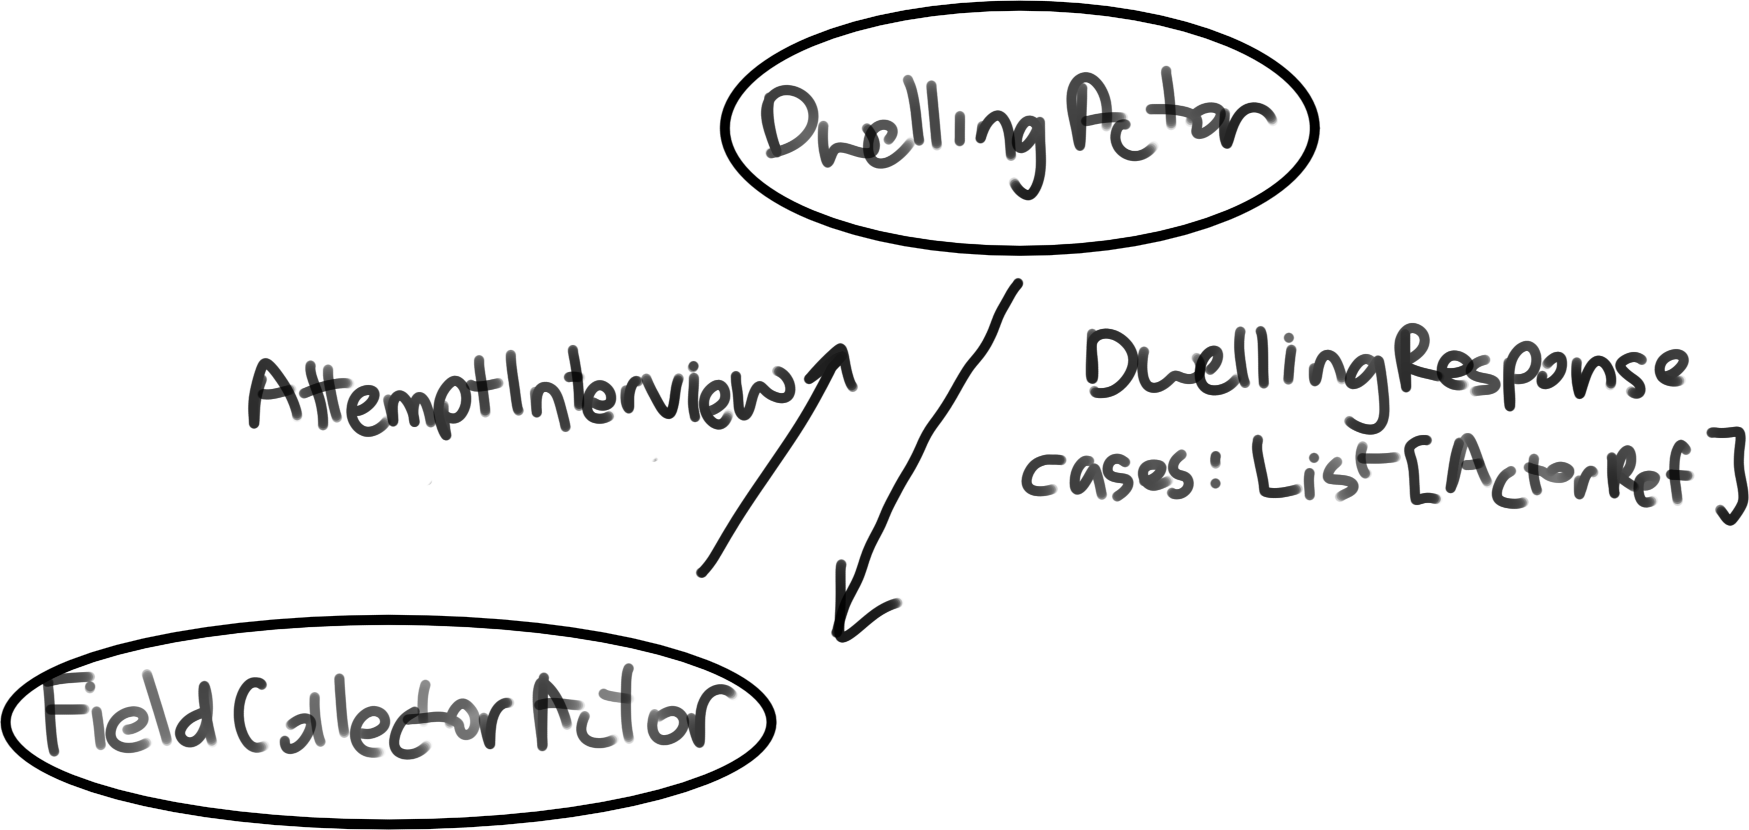 DwellingActor
AttemptInterview
DwellingResponse
cases: List[ActorRef]
FieldCollectorActor